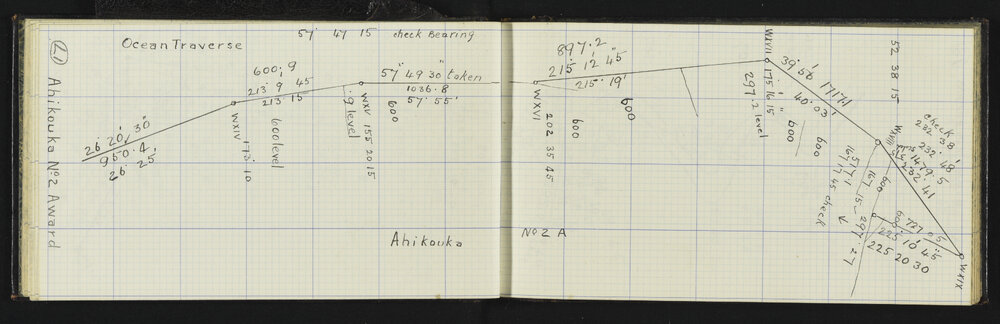 21
Ocean Traverse
57 47 15 check Bearing
Ahikouka No 2 Award
26° 20' 30"
950. 4
26 25
600; 9
213° 9 45
213 15
WXIV 173. 10
600 level
57° 49 30" taken
1036. 8
57° 55'
.9 level
WXV 155 20 15
600
897. 2
215° 12' 45"
215° 19'
WXVI 202 35 45
600
600
WXVII
175 16 15
297. 2 level
600
600
39° 56'
40° 03'
52 38 15
check
232° 38'
232° 48'
1479. 5
232 41
600
167 15
517. 1
167 17 45 check
297. 27
600
727. 05
225° 10' 45"
225 20 30
WXIX
Ahikouka No 2 A